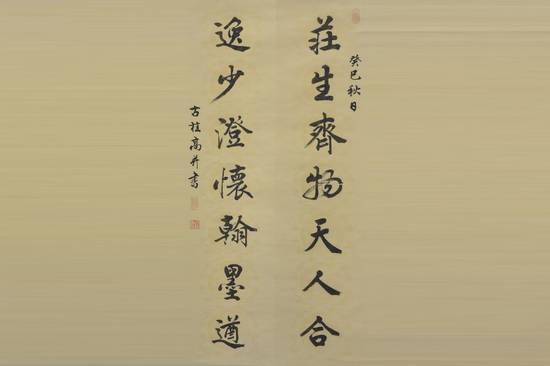 莊生齊物天人合
癸巳秋日
逸少澄懷翰墨遒
古桂高并書